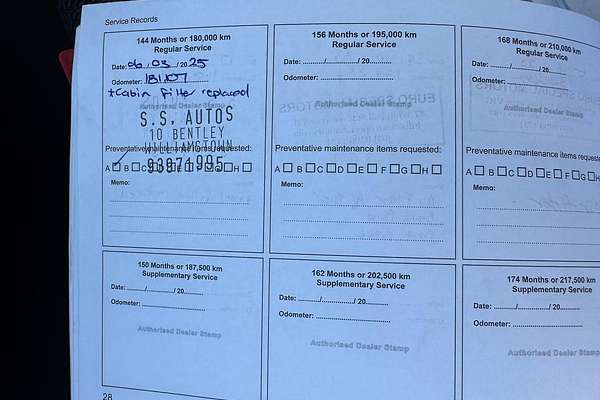 Service Records
144 Months or 180,000 km
Regular Service
Date: 06 / 03 / 2025
Odometer: 181107
*Cabin filter replaced
Authorised Dealer Stamp
S.S. AUTOS
10 BENTLEY
WILLIAMSTOWN
93971995
Preventative maintenance items requested:
A B C D E F G H
Memo:
156 Months or 195,000 km
Regular Service
Date: ........./............/20.........
Odometer: ....................................
Authorised Dealer Stamp
Preventative maintenance items requested:
A B C D E F G H
Memo:
168 Months or 210,000 km
Regular Service
Date: ........./............/20.........
Odometer: ....................................
Authorised Dealer Stamp
Preventative maintenance items reques
A B C D E F G H
Memo:
150 Months or 187,500 km
Supplementary Service
Date: ........./............/20.........
Odometer: ....................................
Authorised Dealer Stamp
162 Months or 202,500 km
Supplementary Service
Date: ........./............/20.........
Odometer: ....................................
Authorised Dealer Stamp
174 Months or 217,500 km
Supplementary Service
Date: ........./............/20.........
Odometer: ....................................
Authorised Dealer Stamp
28